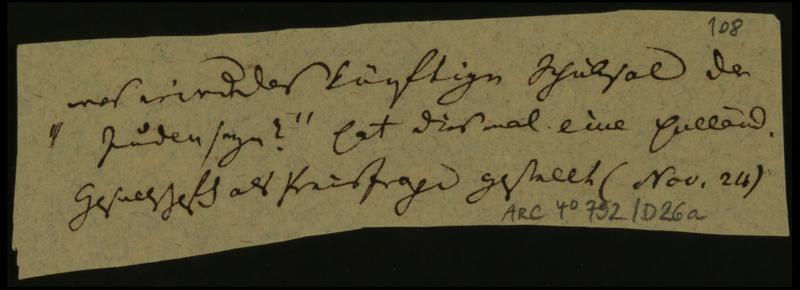 108
was wird das künftige Schicksal der
"Juden seyn?" hat diesmal eine holländ.
Gesellschaft als Preisfrage gestellt (Nov. 24)
ARC 4° 792/D26a